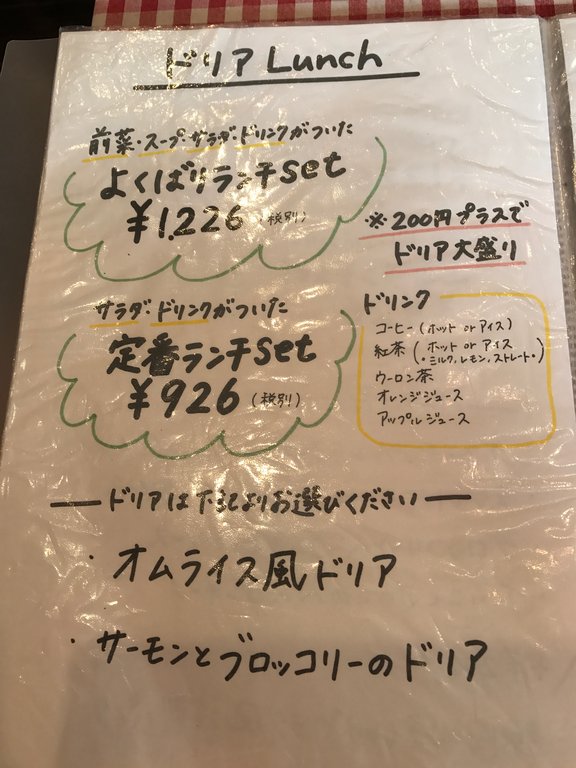 ドリア Lunch
前菜・スープ・サラダ・ドリンクがついた
よくばりランチset
¥1.226 (税別)
※200円プラスで
ドリア大盛り
サラダ・ドリンクがついた
定番ランチset
¥926 (税別)
ドリンク
コーヒー (ホット or アイス)
紅茶 (ホット or アイス
・ミルク,レモン,ストレート・)
ウーロン茶
オレンジジュース
アップルジュース
ドリアは下記よりお選びください
・オムライス風ドリア
・サーモンとブロッコリーのドリア